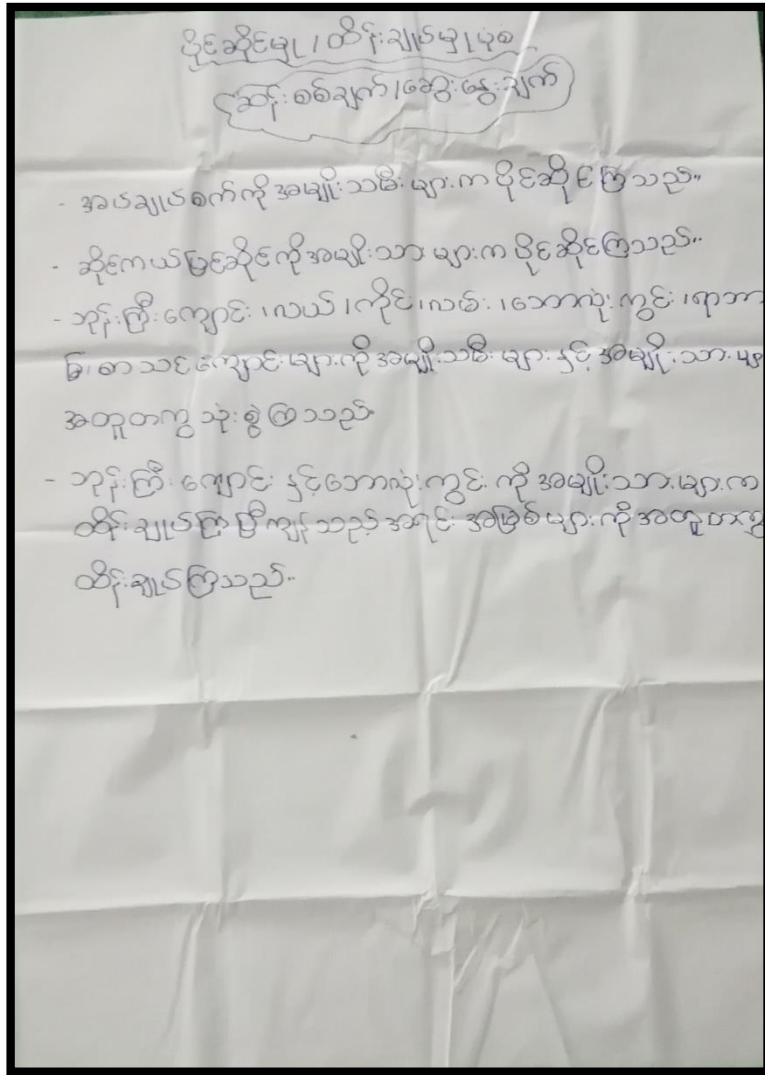 ပိုင်ဆိုင်မှု၊ ထိန်းချုပ်မှုပုံစံ
ဆန်းစစ်ချက်၊ ဆွေးနွေးချက်
- အပ်ချုပ်စက်ကို အမျိုးသမီးများက ပိုင်ဆိုင်ကြသည်။
- ဆိုင်ကယ်ပြင်ဆိုင်ကို အမျိုးသားများက ပိုင်ဆိုင်ကြသည်။
- ဘုန်းကြီးကျောင်း၊ လယ်၊ ကိုင်း၊ လမ်း၊ ဘောလုံးကွင်း၊
စာသင်ကျောင်းများကို အမျိုးသမီးများနှင့် အမျိုးသား
အတူတကွ သုံးစွဲကြသည်
- ဘုန်းကြီးကျောင်းနှင့် ဘောလုံးကွင်းကို အမျိုးသားများက
ထိန်းချုပ်ကြပြီး ကျန်သည့် အရင်းအမြစ်များကို အတူတကွ
ထိန်းချုပ်ကြသည်။